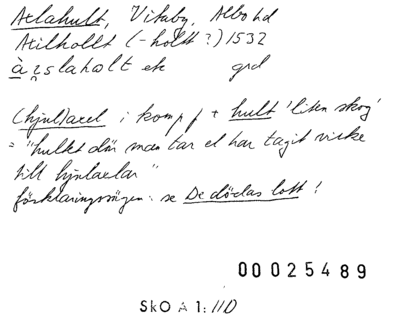 Axlahult, Vitaby, Albo hd
Axilhollt (-holtt?) 1532
à ꝛslahalt etc grd
(hjul)axel i komp f + hult 'liten skog'
= "hultet där man tar el har tagit virke
till hjulaxlar"
förklaringssägen: se De dödas lott!
00025489
SkO A 1: 11D